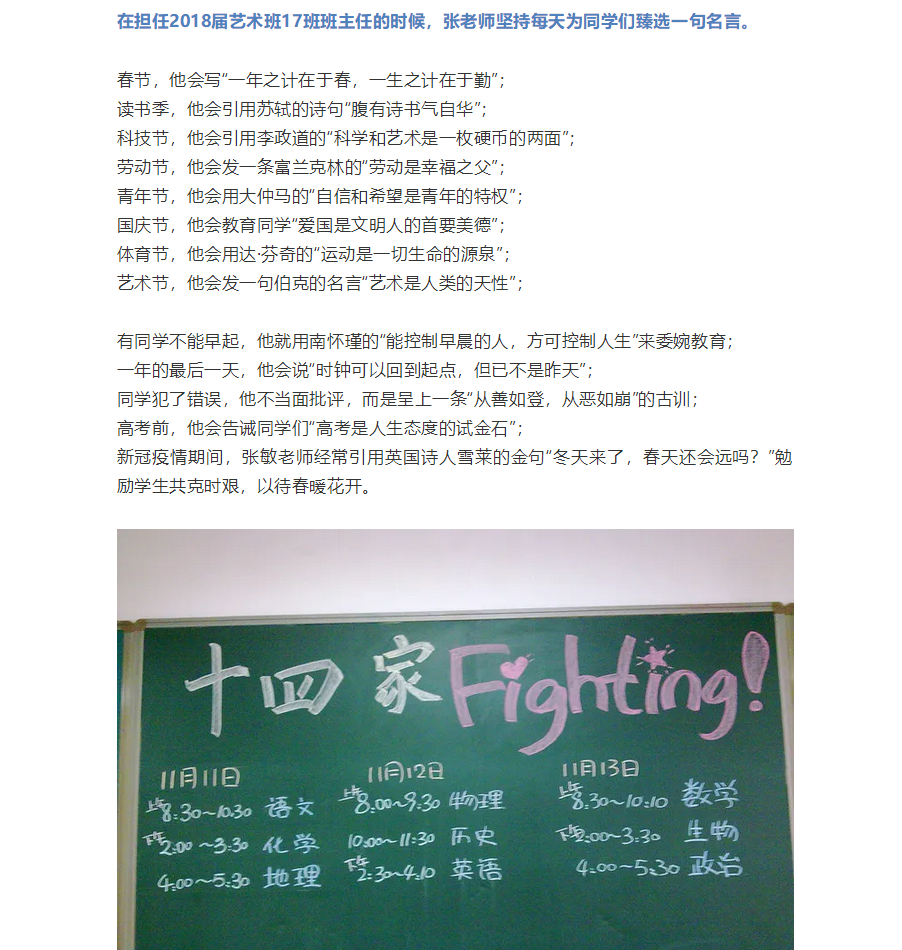 在担任2018届艺术班17班班主任的时候，张老师坚持每天为同学们臻选一句名言。
春节，他会写“一年之计在于春，一生之计在于勤”；
读书季，他会引用苏轼的诗句“腹有诗书气自华”；
科技节，他会引用李政道的“科学和艺术是一枚硬币的两面”；
劳动节，他会发一条富兰克林的“劳动是幸福之父”；
青年节，他会用大仲马的“自信和希望是青年的特权”；
国庆节，他会教育同学“爱国是文明人的首要美德”；
体育节，他会用达·芬奇的“运动是一切生命的源泉”；
艺术节，他会发一句伯克的名言“艺术是人类的天性”；
有同学不能早起，他就用南怀瑾的“能控制早晨的人，方可控制人生”来委婉教育；
一年的最后一天，他会说“时钟可以回到起点，但已不是昨天”；
同学犯了错误，他不当面批评，而是呈上一条“从善如登，从恶如崩”的古训；
高考前，他会告诫同学们“高考是人生态度的试金石”；
新冠疫情期间，张敏老师经常引用英国诗人雪莱的金句“冬天来了，春天还会远吗？”勉
励学生共克时艰，以待春暖花开。
十四家Fighting!
11月11日 11月12日 11月13日
上午8:30~10:30 语文 上午8:00~9:30 物理 上午8:30~10:10 数学
下午2:00~3:30 化学 10:00~11:30 历史 下午2:00~3:30 生物
4:00~5:30 地理 下午2:30~4:10 英语 4:00~5:30 政治